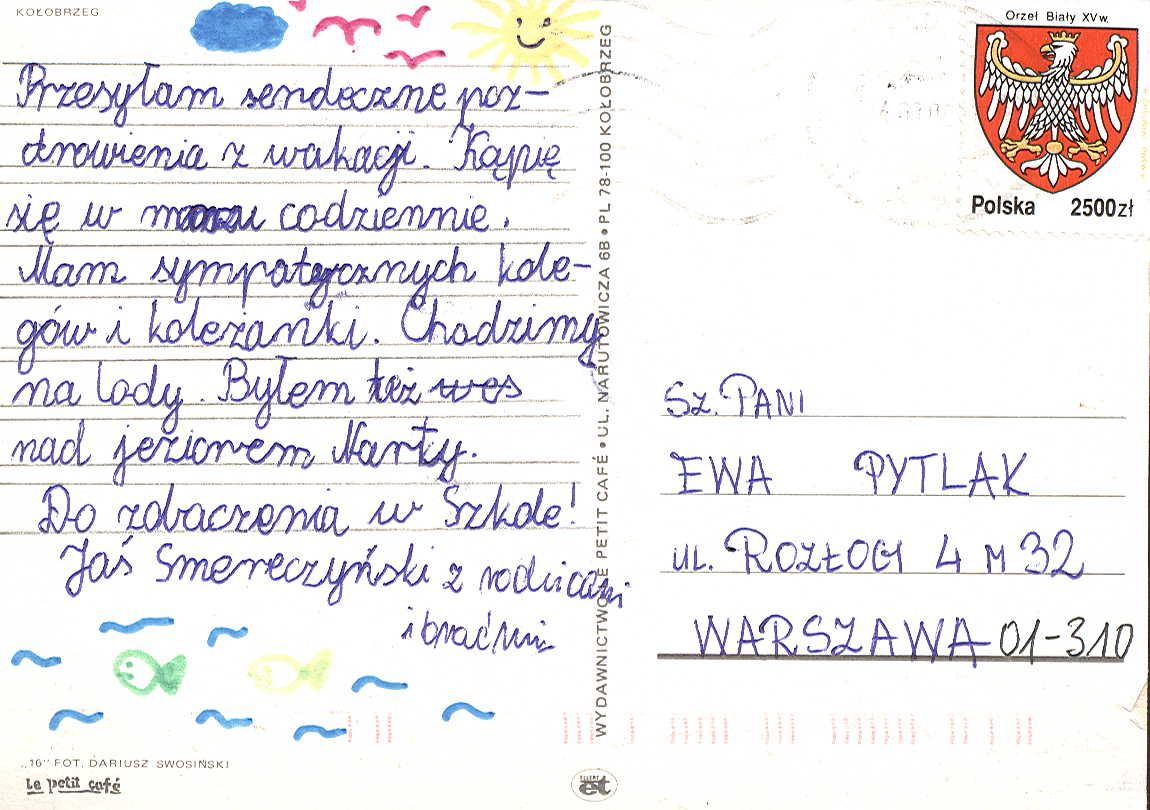 KOŁOBRZEG
Przesyłam serdeczne poz-
drowienia z wakacji. Kąpię
się w morzu codziennie.
Mam sympatycznych kole-
gów i koleżanki. Chodzimy
na lody. Byłem też wos
nad jeziorem Narty.
Do zobaczenia w Szkole!
Jaś Smereczyński z rodzicami
i braćmi
„16" FOT. DARIUSZ SWOSIŃSKI
Le petit café
WYDAWNICTWO LE PETIT CAFÉ • UL. NARUTOWICZA 6B • PL 78-100 KOŁOBRZEG
et
Orzeł Biały XVw.
Polska 2500zł
SZ. PANI
EWA PYTLAK
UL. ROZŁOGI 4 M 32
WARSZAWA 01-310